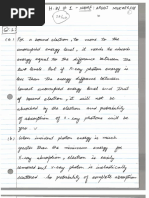 H.W # 1 -
Q.1
(a) For a bound electron, to move to the
unoccupied energy level, it needs to absorb
energy equal to the difference between the
two levels. But if X-ray photon energy is
less than the energy difference between
unoccupied energy level and that
of bound electron, it will not be
absorbed by the electron and probability
of absorption of X-ray photon will be
zero.
(b) When incident photon energy is much
greater than the minimum energy for
X-ray absorption, electron is easily
and X-ray photon is
scattered. So probability of complete absorption